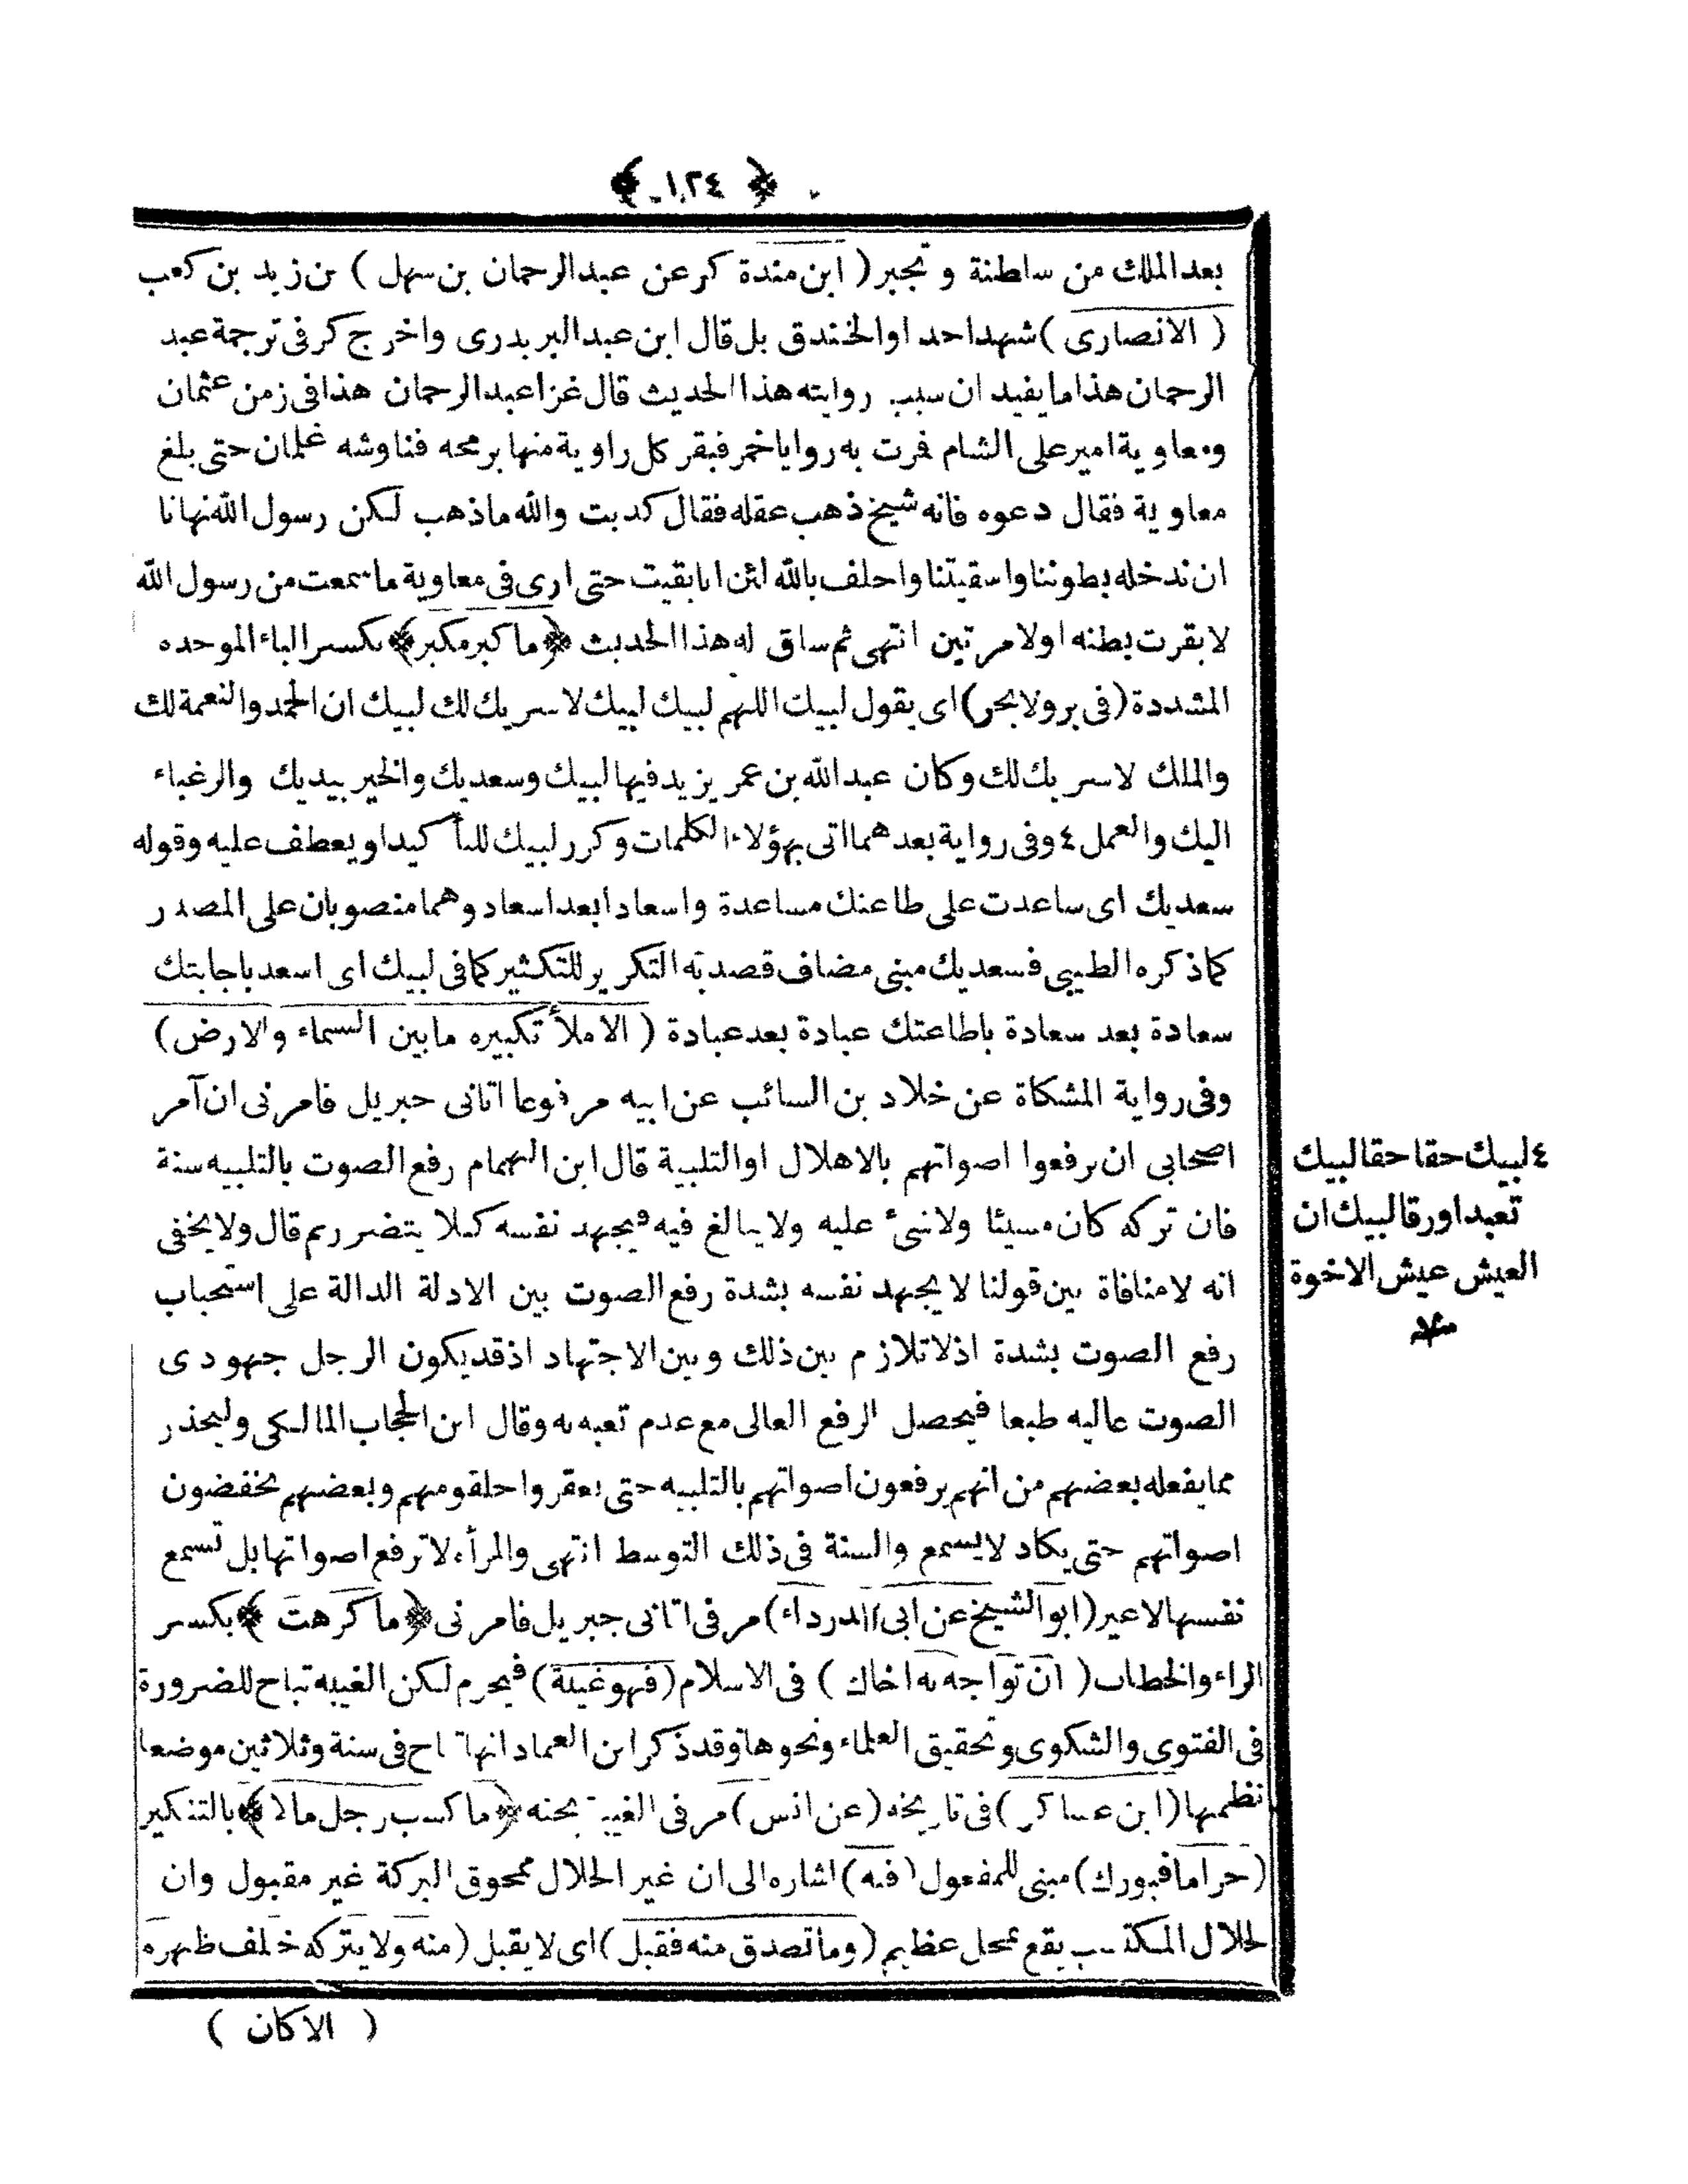 ﴿ ١٢٤ ﴾
بعد الملك من سلطنة و تجبر ( ابن مندة كر عن عبد الرحمان بن سهل ) بن زيد بن كعب
( الانصارى ) شهد احد او الخندق بل قال ابن عبد البر بدرى واخرج كر فى ترجمة عبد
الرحمان هذا ما يفيد ان سبب روايته هذا الحديث قال غزا عبد الرحمان هذا فى زمن عثمان
ومعاوية امير على الشام فمرت به روايا خمر فبقر كل راوية منها برمحه فناوشه غلمان حتى بلغ
معاوية فقال دعوه فانه شيخ ذهب عقله فقال كذبت والله ما ذهب لكن رسول الله نهانا
ان ندخله بطوننا واسقيتنا واحلف بالله لئن انا بقيت حتى ارى فى معاوية ما سمعت من رسول الله
لا بقرت بطنه اولا مرتين انتهى ثم ساق له هذا الحديث ﴿ ما كبر مكبر ﴾ بكسر الباء الموحده
المشددة ( فى بر ولا بحر ) اى يقول لبيك اللهم لبيك لبيك لا شريك لك لبيك ان الحمد والنعمة لك
والملك لا شريك لك وكان عبد الله بن عمر يزيد فيها لبيك وسعديك والخير بيديك والرغباء
اليك والعمل ٤ وفى رواية بعدهما اتى بهؤلاء الكلمات وكرر لبيك للتأكيد او يعطف عليه وقوله
سعديك اى ساعدت على طاعتك مساعدة واسعادا بعد اسعاد وهما منصوبان على المصدر
كما ذكره الطيبى فسعديك مبنى مضاف قصد به التكرير للتكثير كما فى لبيك اى اسعد باجابتك
سعادة بعد سعادة باطاعتك عبادة بعد عبادة ( الا ملأ تكبيره ما بين السماء والارض )
وفى رواية المشكاة عن خلاد بن السائب عن ابيه مرفوعا اتانى جبريل فامرنى ان آمر
اصحابى ان يرفعوا اصواتهم بالاهلال او التلبية قال ابن الهمام رفع الصوت بالتلبيه سنة
فان تركه كان مسيئا ولا شىء عليه ولا يبالغ فيه فيجهد نفسه كيلا يتضرر ثم قال ولا يخفى
انه لا منافاة بين قولنا لا يجهد نفسه بشدة رفع الصوت بين الادلة الدالة على استحباب
رفع الصوت بشدة اذ لا تلازم بين ذلك وبين الاجتهاد اذ قد يكون الرجل جهودى
الصوت عاليه طبعا فيحصل الرفع العالى مع عدم تعبه به وقال ابن الحجاب المالكى وليحذر
مما يفعله بعضهم من انهم يرفعون اصواتهم بالتلبيه حتى يعقروا حلقومهم وبعضهم يخفضون
اصواتهم حتى يكاد لا يسمع والسنة فى ذلك التوسط انتهى والمرأة لا ترفع اصواتها بل تسمع
نفسها لا غير ( ابو الشيخ عن ابى الدرداء ) مر فى اتانى جبريل فامرنى ﴿ ما كرهت ﴾ بكسر
الراء والخطاب ( ان تواجه به اخاك ) فى الاسلام ( فهو غيبة ) فيحرم لكن الغيبه تباح للضرورة
فى الفتوى والشكوى وتحقيق العلماء ونحوها وقد ذكر ابن العماد انها تباح فى ستة وثلاثين موضعا
نظمها ( ابن عساكر ) فى تاريخه ( عن انس ) مر فى الغيبة بحثه ﴿ ما كسب رجل مالا ﴾ بالتنكير
( حراما فبورك ) مبنى للمفعول ( فيه ) اشاره الى ان غير الحلال ممحوق البركة غير مقبول وان
لحلال المكتسب يقع بمحل عظيم ( وما تصدق منه فقبل ) اى لا يقبل ( منه ولا يتركه خلف ظهره
( الا كان )
٤ لبيك حقا حقا لبيك
تعبدا ورقا لبيك ان
العيش عيش الاخوة